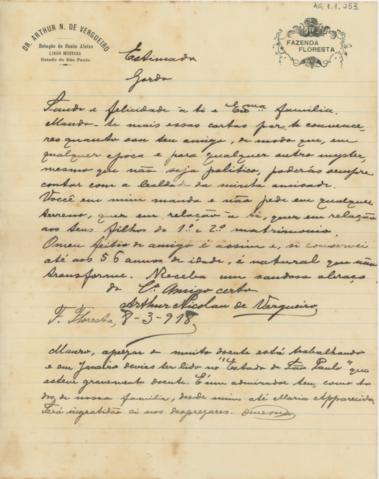 AG 1.1.253
DR. ARTHUR N. DE VERGUEIRO
Estação de Santo Aleixo
LINHA MOGYANA
Estado de São Paulo
FAZENDA
FLORESTA
Estimado
Gordo
Saude e felicidade a ti e Exma familia.
Mando-te mais essas cartas por te convence-
res quanto sou teu amigo, de modo que, em
qualquer epoca e para qualquer outro mister,
mesmo que não seja politico, poderás sempre
contar com a da minha amisade.
Você em mim manda e não pede em qualquer
terreno, quer em relação a si, quer em relação
aos seus filhos do 1º e 2º matrimonio.
O meu feitio de amigo é assim e, si conservei
até aos 56 annos de idade, é natural que não
transforme. Receba um saudoso abraço
do Cº Amigo certo
Arthur Nicolau de Vergueiro
F. Floresta, 8-3-918
Mauro, apezar de muito doente está trabalhando
e em Janeiro devias ter lido no "Estado de São Paulo" que
esteve gravemente doente. É um admirador teu, como to
dos de nossa familia, desde mim até Maria Apparecida.
Será ingratidão si nos desprezares.